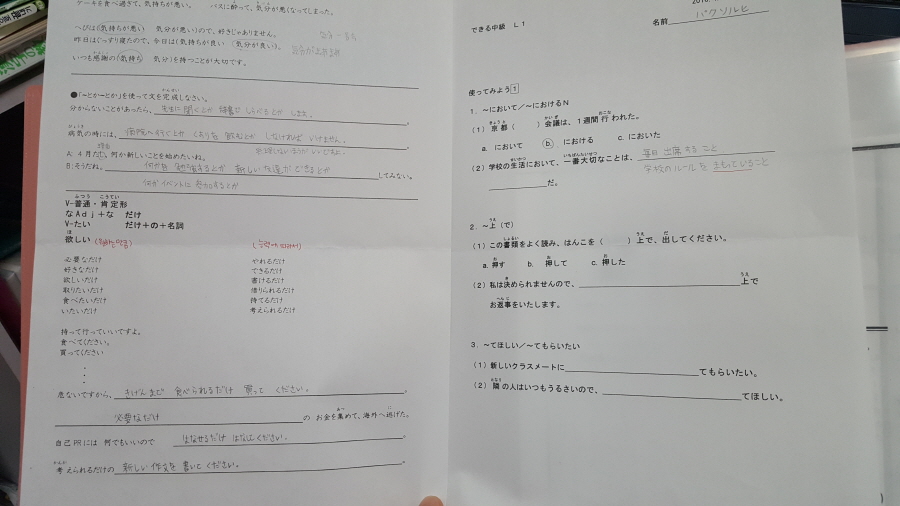 ケーキを食べ過ぎて、気持ちが悪い。 バスに酔って、気分が悪くなってしまった。
へびは(気持ちが悪い 気分が悪い)ので、好きじゃありません。
昨日はぐっすり寝たので、今日は(気持ちが良い 気分が良い)。
いつも感謝の(気持ち 気分)を持つことが大切です。
●「~とか~とか」を使って文を完成しなさい。
分からないことがあったら、先生に聞くとか 辞書で しらべるとか します。
病気の時には、病院へ行くとか くすりを 飲むとか しなければ いけません。
A: 4月だし、何か新しいことを始めたいね。
B: そうだね。何かを 勉強するとか 新しい 友達が できるとか してみない。
何か イベントに 参加するとか
V-普通・肯定形
なAdj+な だけ
V-たい だけ+の+名詞
欲しい
必要なだけ やれるだけ
好きなだけ できるだけ
欲しいだけ 書けるだけ
取りたいだけ 借りられるだけ
食べたいだけ 待てるだけ
いたいだけ 考えられるだけ
持って行っていいですよ。
食べてください。
買ってください
・
・
・
危ないですから、きげんまで 食べられるだけ 買って ください。
必要なだけ の お金を集めて、海外へ逃げた。
自己PRには 何でもいいので はなせるだけ はなしてください。
考えられるだけの 新しい 作文を 書いて ください。
できる中級 L1
名前 パクソルヒ
使ってみよう1
1. ~において/~におけるN
(1) 京都( )会議は、1週間行われた。
a. において b. における c. においた
(2) 学校の生活において、一番大切なことは、毎日 出席する こと
学校のルールを まもっていること
だ。
2. ~上(で)
(1) この書類をよく読み、はんこを( )上で、出してください。
a. 押す b. 押して c. 押した
(2) 私は決められませんので、 上で
お返事をいたします。
3. ~てほしい/~てもらいたい
(1) 新しいクラスメートに てもらいたい。
(2) 隣の人はいつもうるさいので、 てほしい。